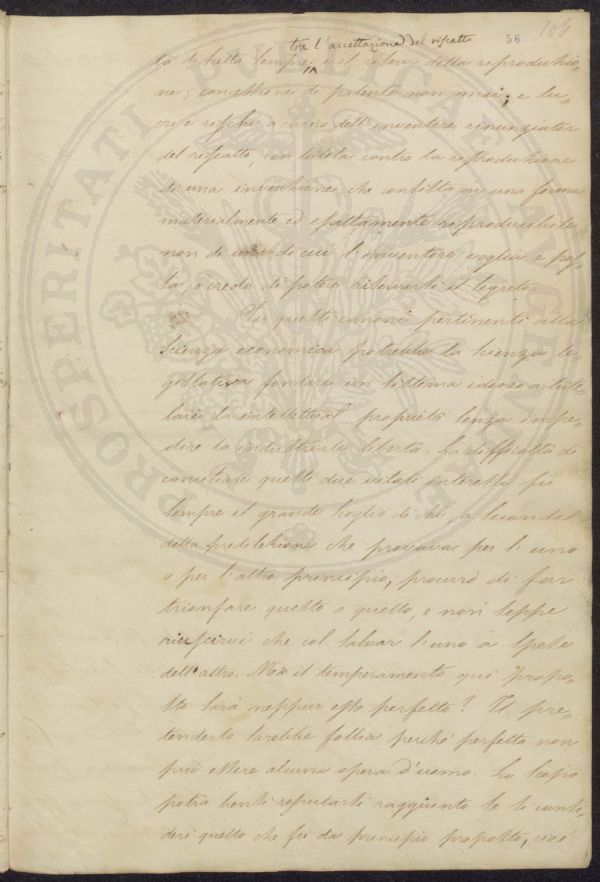 tra l'accettazione del riscatto 56 106
ta si tratta sempre e il rifiuto della riproduzio-
ne; concessione di patente non mai; e lu-
cri e rischi a carico dell'inventore rinunziator
del riscatto, con tutela contro la riproduzione
di una invenzione che consista in una forma
materialmente ed esattamente riproducibile
non di cui l'inventore voglia e pos-
sa, o creda di potere riservarsi il segreto.
Su questi canoni pertinenti alla
scienza economica potrebbe la scienza le-
gislativa fondare un sistema idoneo a tute-
lare la intellettual proprietà senza impe-
dire la industriale libertà. La difficoltà di
conciliare questi due vitali interessi fu
sempre il grande scoglio di chi, a secondo
della predilezione che provava per l'uno
o per l'altro principio, procurò di far
trionfare questo o quello, e non seppe
riuscirvi che col salvar l'uno a spese
dell'altro. Ma il temperamento qui propo-
sto sarà neppur esso perfetto? Il pre-
tenderlo sarebbe follia perché perfetta non
può essere alcuna opera d'uomo. Lo scopo
potrà bensì reputarsi raggiunto se si consi-
deri quello che fu da principio proposto, cioè
PROSPERITATI PUBLICAE AUGENDAE